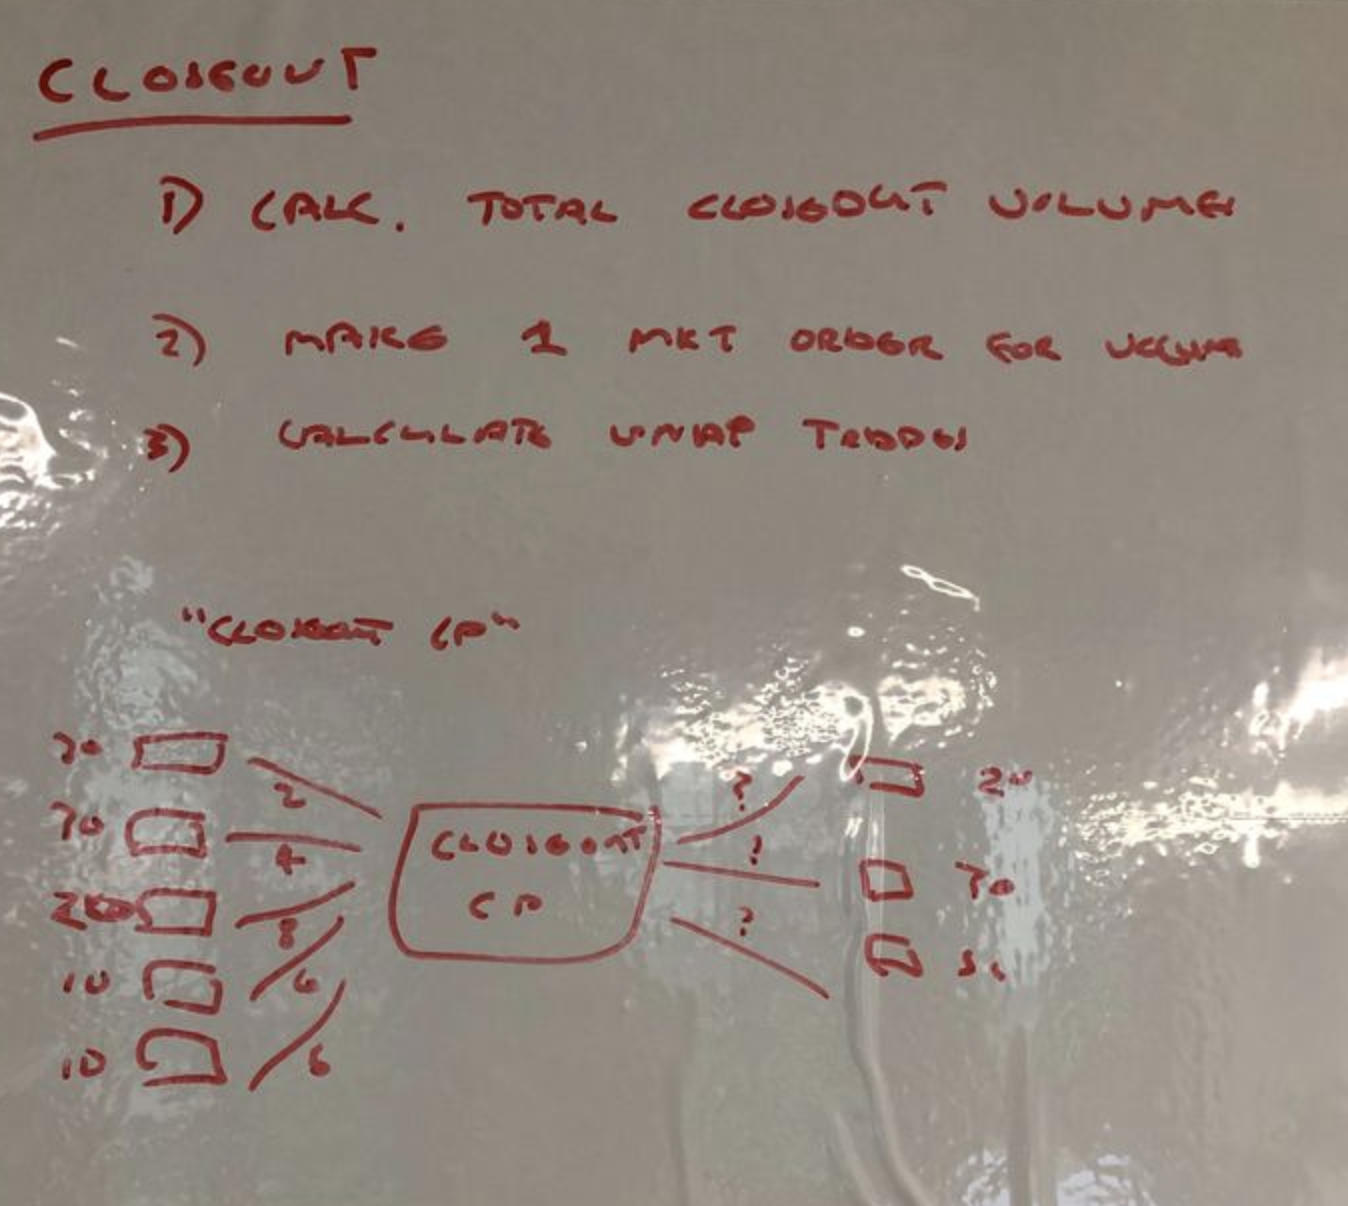 CLOSEOUT
1) CALC. TOTAL CLOSEOUT VOLUMES
2) MAKE 1 MKT ORDER FOR VOLUME
3) CALCULATE VWAP TRADES
"CLOSEOUT CP"
70
2
?
20
70
4
CLOSEOUT
!
70
8
CP
?
10
6
10
6